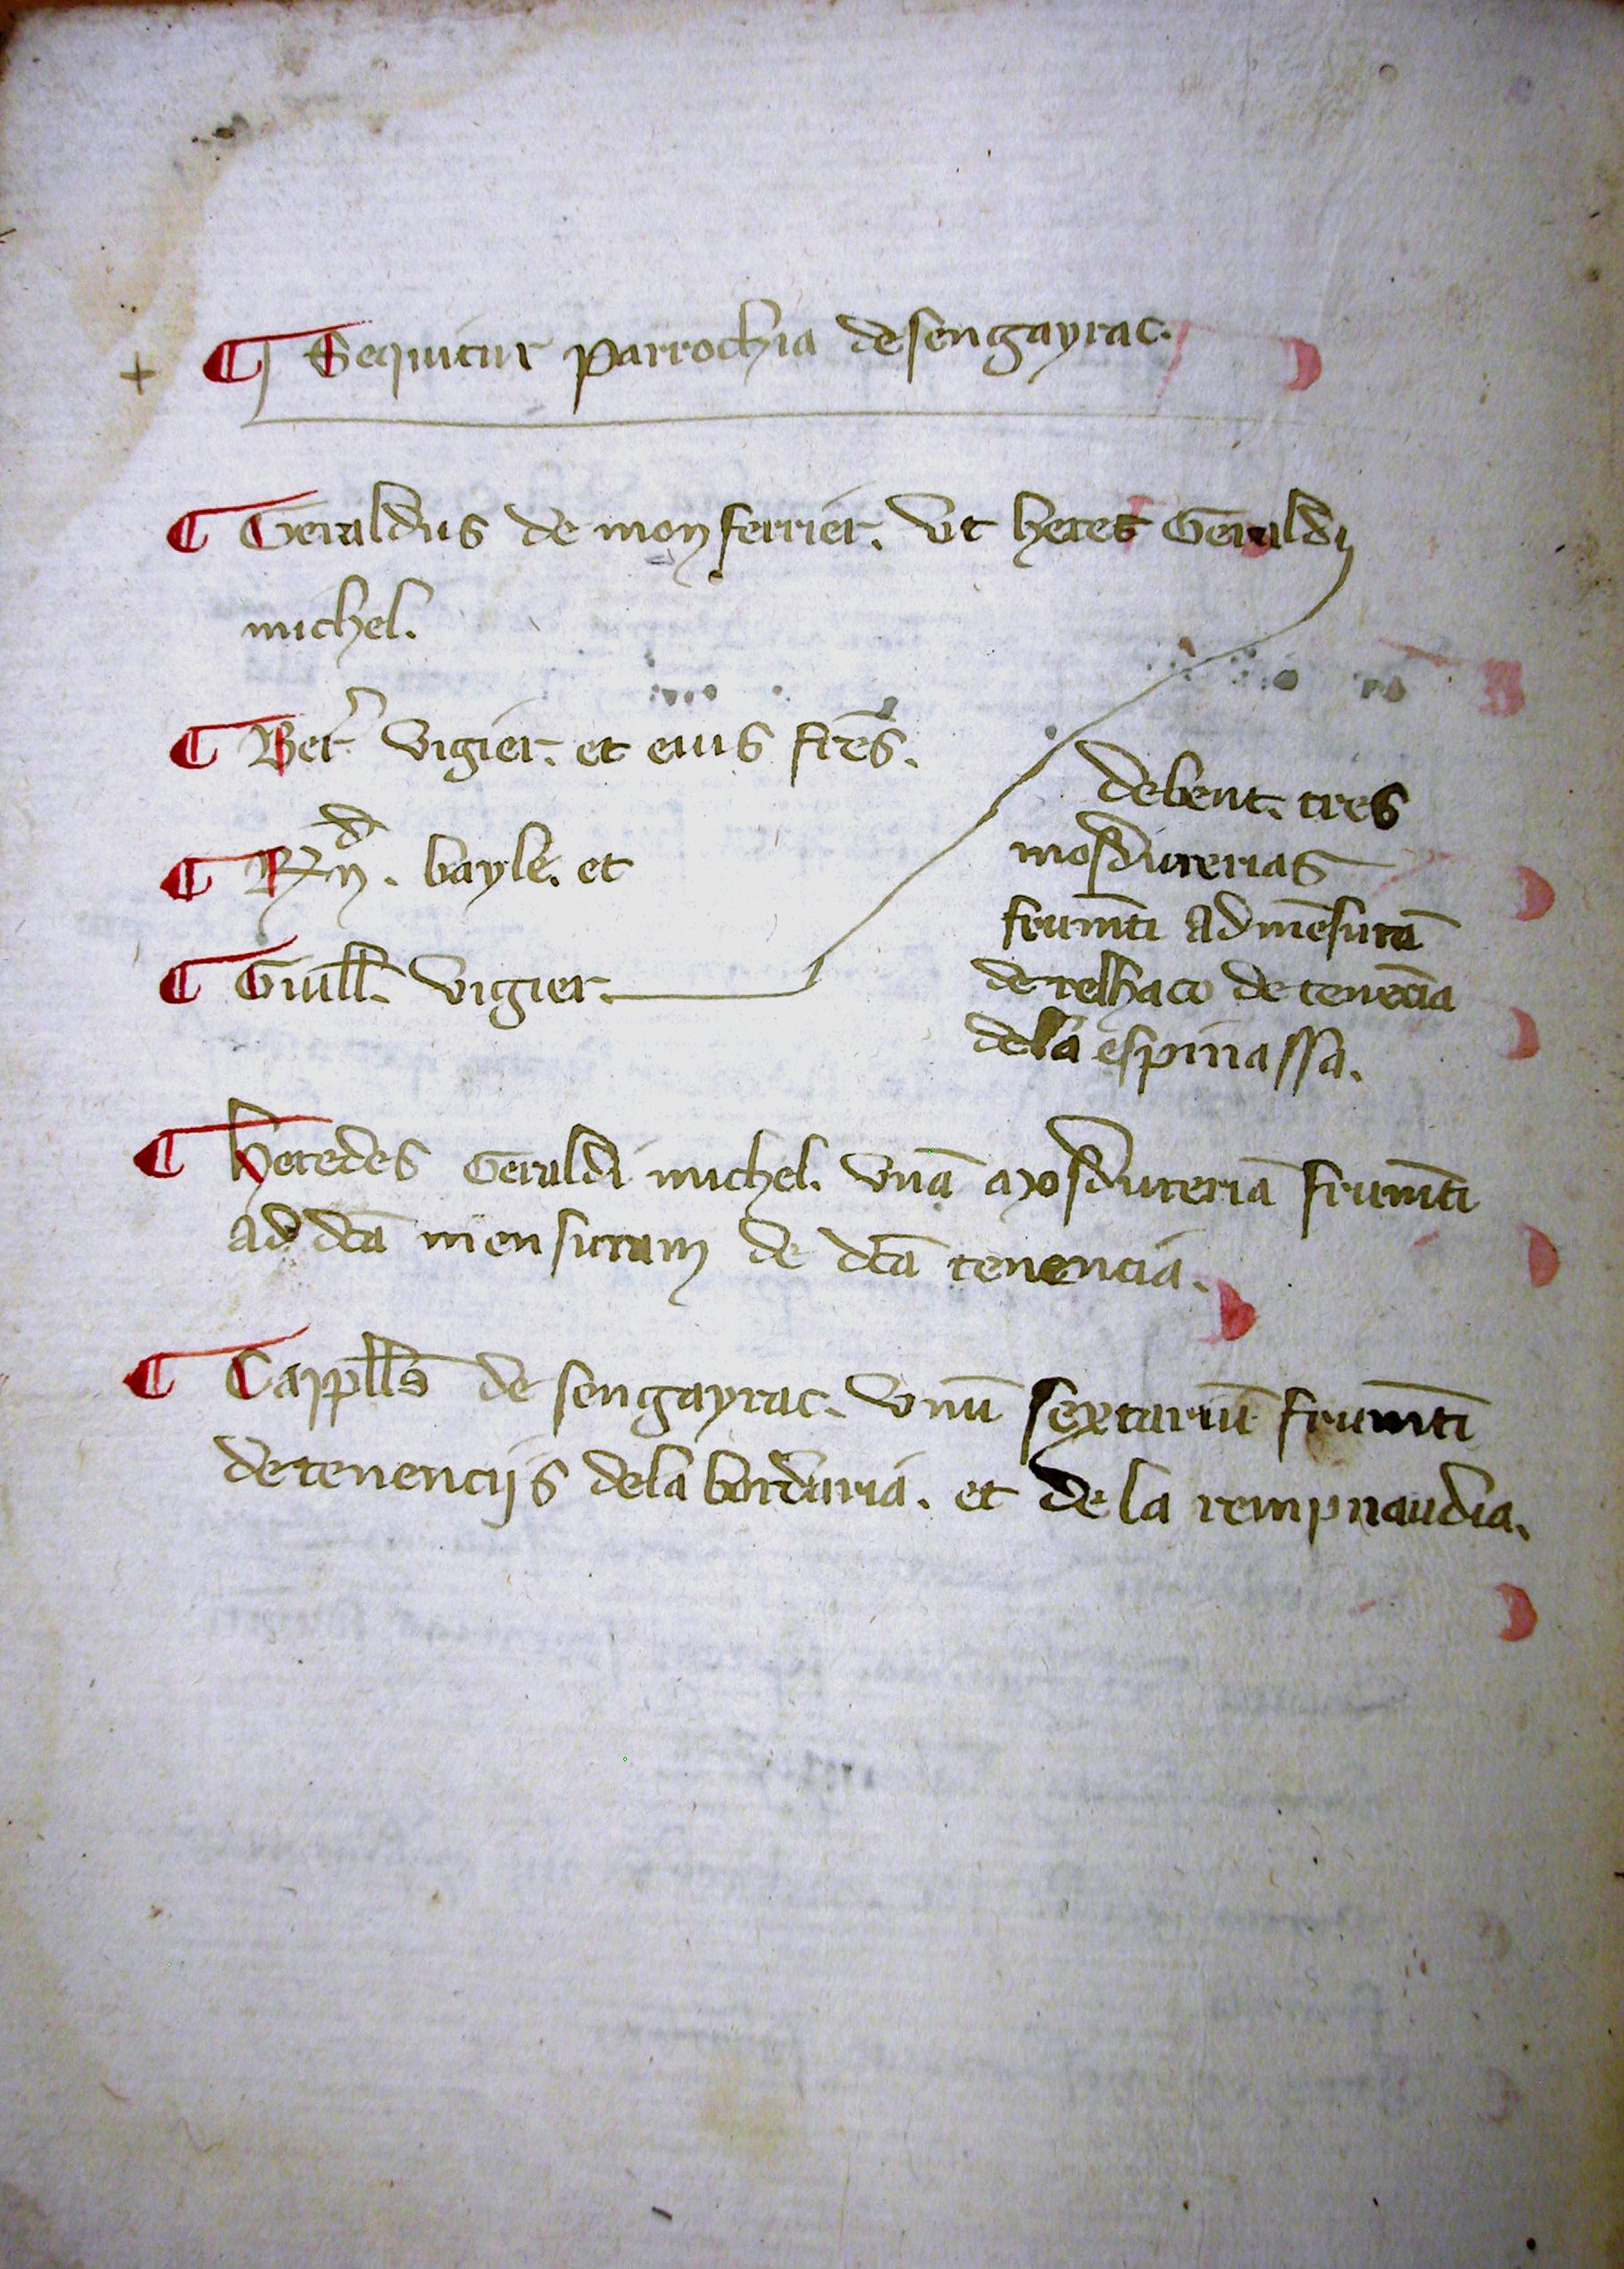 + ¶ Sequitur parrochia de sengayrac.
¶ Geraldus de monferrier. ut heres Geraldi
michel.
¶ Ber̄ vigier. et eius fr̄es.
¶ R̄y^d. bayle. et
¶ Guill̄. vigier.
debent. tres
mosdurerias
frum̄ti ad mēsurā
de relhaco de tenēcia
de la espinassa.
¶ heredes Geraldi michel. unā mosdureriā frum̄ti
ad dc̄ā mensuram de dc̄ā tenencia.
¶ Cappll̄s de sengayrac. unū sextariū frum̄ti
de tenencijs de la bordaria. et de la rempnaudia.